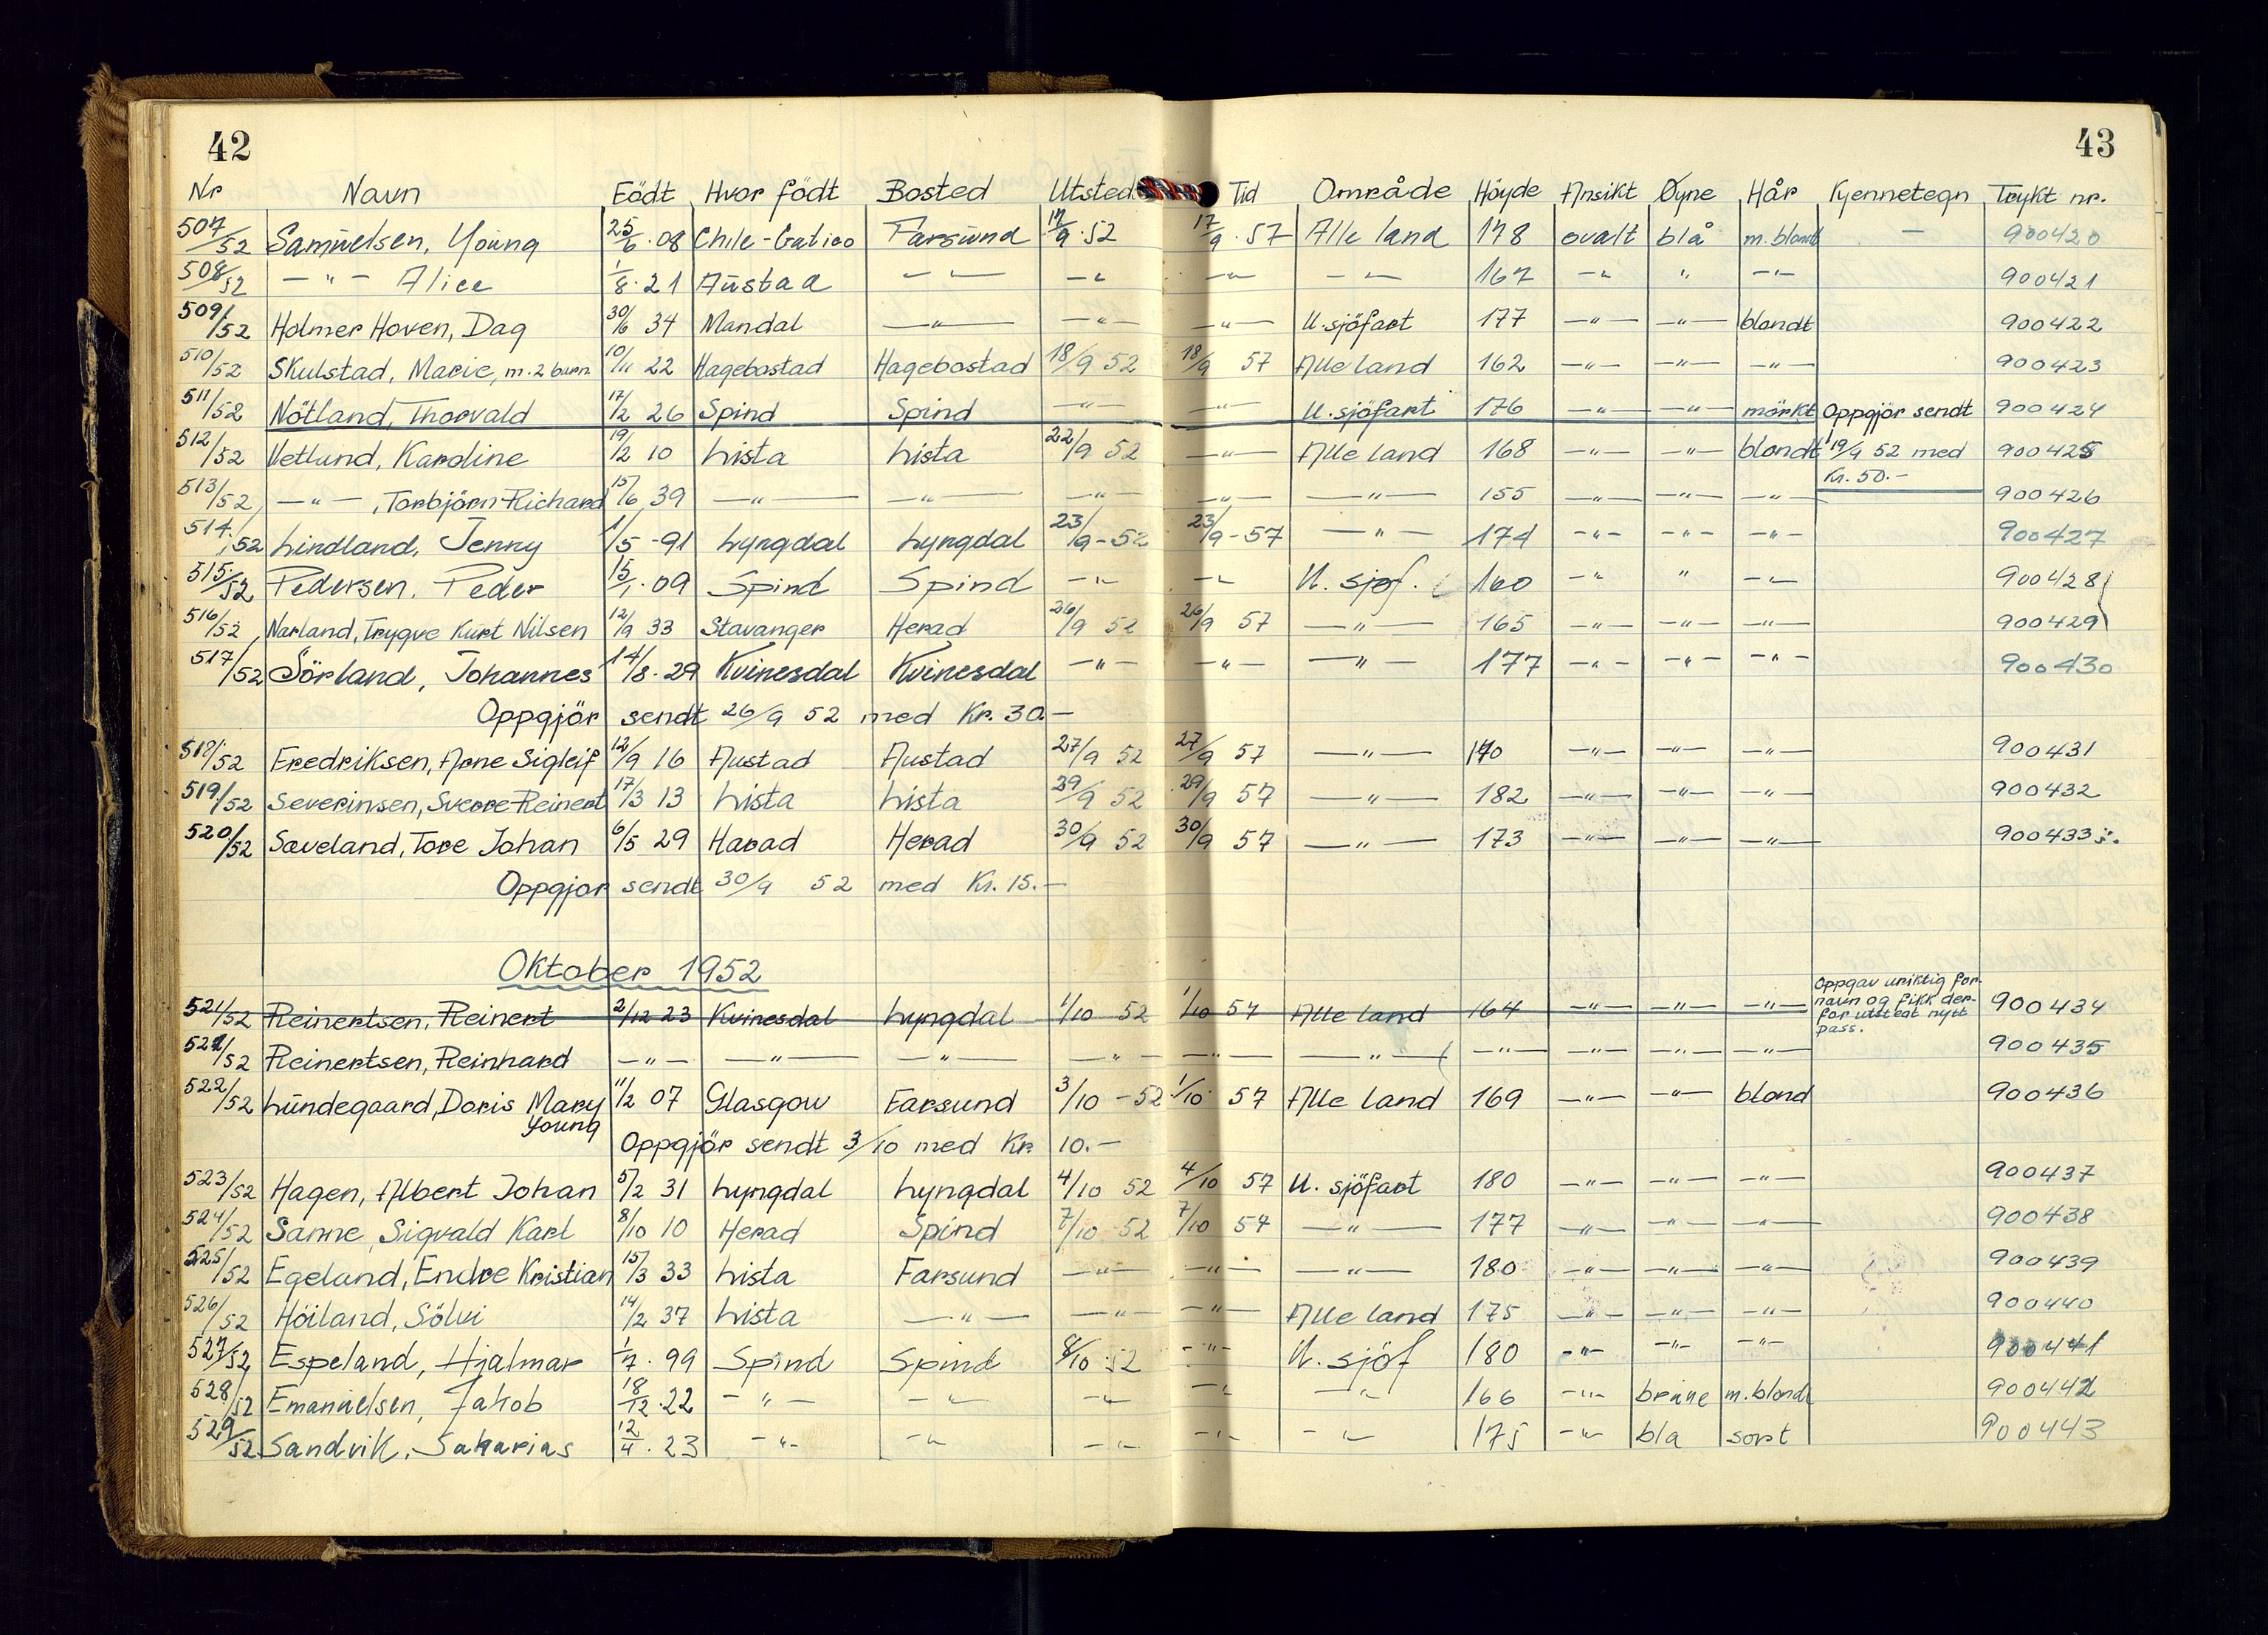 42
43
Nr Navn Födt Hvor födt Bosted Utsted Tid Område Höyde Ansikt Øyne Hår Kjennetegn Trykt nr.
507/52 Samuelsen, Young 25/6.08 Chile-Gatico Farsund 17/9.52 17/9.57 Alle land 178 ovalt blå m. blond — 900420
508/52 — " — Alice 1/8.21 Austad — " — — " — — " — — " — 167 — " — " — " — 900421
509/52 Holmer Hoven, Dag 30/6 34 Mandal — " — — " — — " — U. sjöfart 177 — " — — " — blondt 900422
510/52 Skulstad, Marie, m. 2 barn 10/11 22 Hagebostad Hagebostad 18/9 52 18/9 57 Alle land 162 — " — — " — — " — 900423
511/52 Nötland, Thorvald 17/2 26 Spind Spind — " — — " — U. sjöfart 176 — " — — " — mörkt Oppgjör sendt 900424
512/52 Vetland, Karoline 19/2 10 Lista Lista 22/9 52 — " — Alle land 168 — " — — " — blondt 19/9 52 med 900425
Kr. 50.-
513/52 — " —, Torbjörn Richard 15/6 39 — " — — " — — " — — " — — " — 155 — " — — " — — " — 900426
514/52 Lindland, Jenny 1/5 -91 Lyngdal Lyngdal 23/9-52 23/9-57 — " — 174 — " — — " — — " — 900427
515/52 Pedersen, Peder 15/1.09 Spind Spind — " — — " — U. sjøf. 160 — " — " — " — 900428
516/52 Narland, Trygve Kurt Nilsen 12/9 33 Stavanger Herad 26/9 52 26/9 57 — " — 165 — " — — " — — " — 900429
517/52 Sörland, Johannes 14/8.29 Kvinesdal Kvinesdal — " — — " — — " — 177 — " — — " — — " — 900430
Oppgjör sendt 26/9 52 med Kr. 30.—
518/52 Fredriksen, Arne Sigleif 12/9 16 Austad Austad 27/9 52 27/9 57 — " — 170 — " — — " — — " — 900431
519/52 Severinsen, Sverre Reinert 17/3 13 Lista Lista 29/9 52 29/9 57 — " — 182 — " — — " — — " — 900432
520/52 Sæveland, Tore Johan 6/5 29 Harad Herad 30/9 52 30/9 57 — " — 173 — " — — " — — " — 900433
Oppgjor sendt 30/9 52 med Kr. 15.—
Oktober 1952
521/52 Reinertsen, Reinert 2/12 23 Kvinesdal Lyngdal 1/10 52 1/10 57 Alle land 164 — " — — " — — " — Oppgav uriktig for- 900434
navn og fikk der-
for utstedt nytt
pass.
521/52 Reinertsen, Reinhard — " — — " — — " — — " — — " — — " — — " — — " — — " — — " — 900435
522/52 Lundegaard, Doris Mary 11/2 07 Glasgow Farsund 3/10 -52 1/10 57 Alle land 169 — " — — " — blond 900436
Young
Oppgjör sendt 3/10 med Kr. 10.—
523/52 Hagen, Albert Johan 5/2 31 Lyngdal Lyngdal 4/10 52 4/10 57 U. sjöfart 180 — " — — " — — " — 900437
524/52 Sanne, Sigvald Karl 8/10 10 Herad Spind 7/10 52 7/10 57 — " — 177 — " — — " — — " — 900438
525/52 Egeland, Endre Kristian 15/3 33 Lista Farsund — " — — " — — " — 180 — " — — " — — " — 900439
526/52 Höiland, Sölvi 14/2 37 Lista — " — — " — — " — Alle land 175 — " — — " — — " — 900440
527/52 Espeland, Hjalmar 1/7.99 Spind Spind 8/10.52 — " — U. sjöf 180 — " — — " — — " — 900441
528/52 Emanuelsen, Jakob 18/12.22 — " — — " — — " — — " — — " — 166 — " — brune m. blond 900442
529/52 Sandvik, Sakarias 12/4.23 — " — — " — — " — — " — — " — 175 — " — bla sort 900443